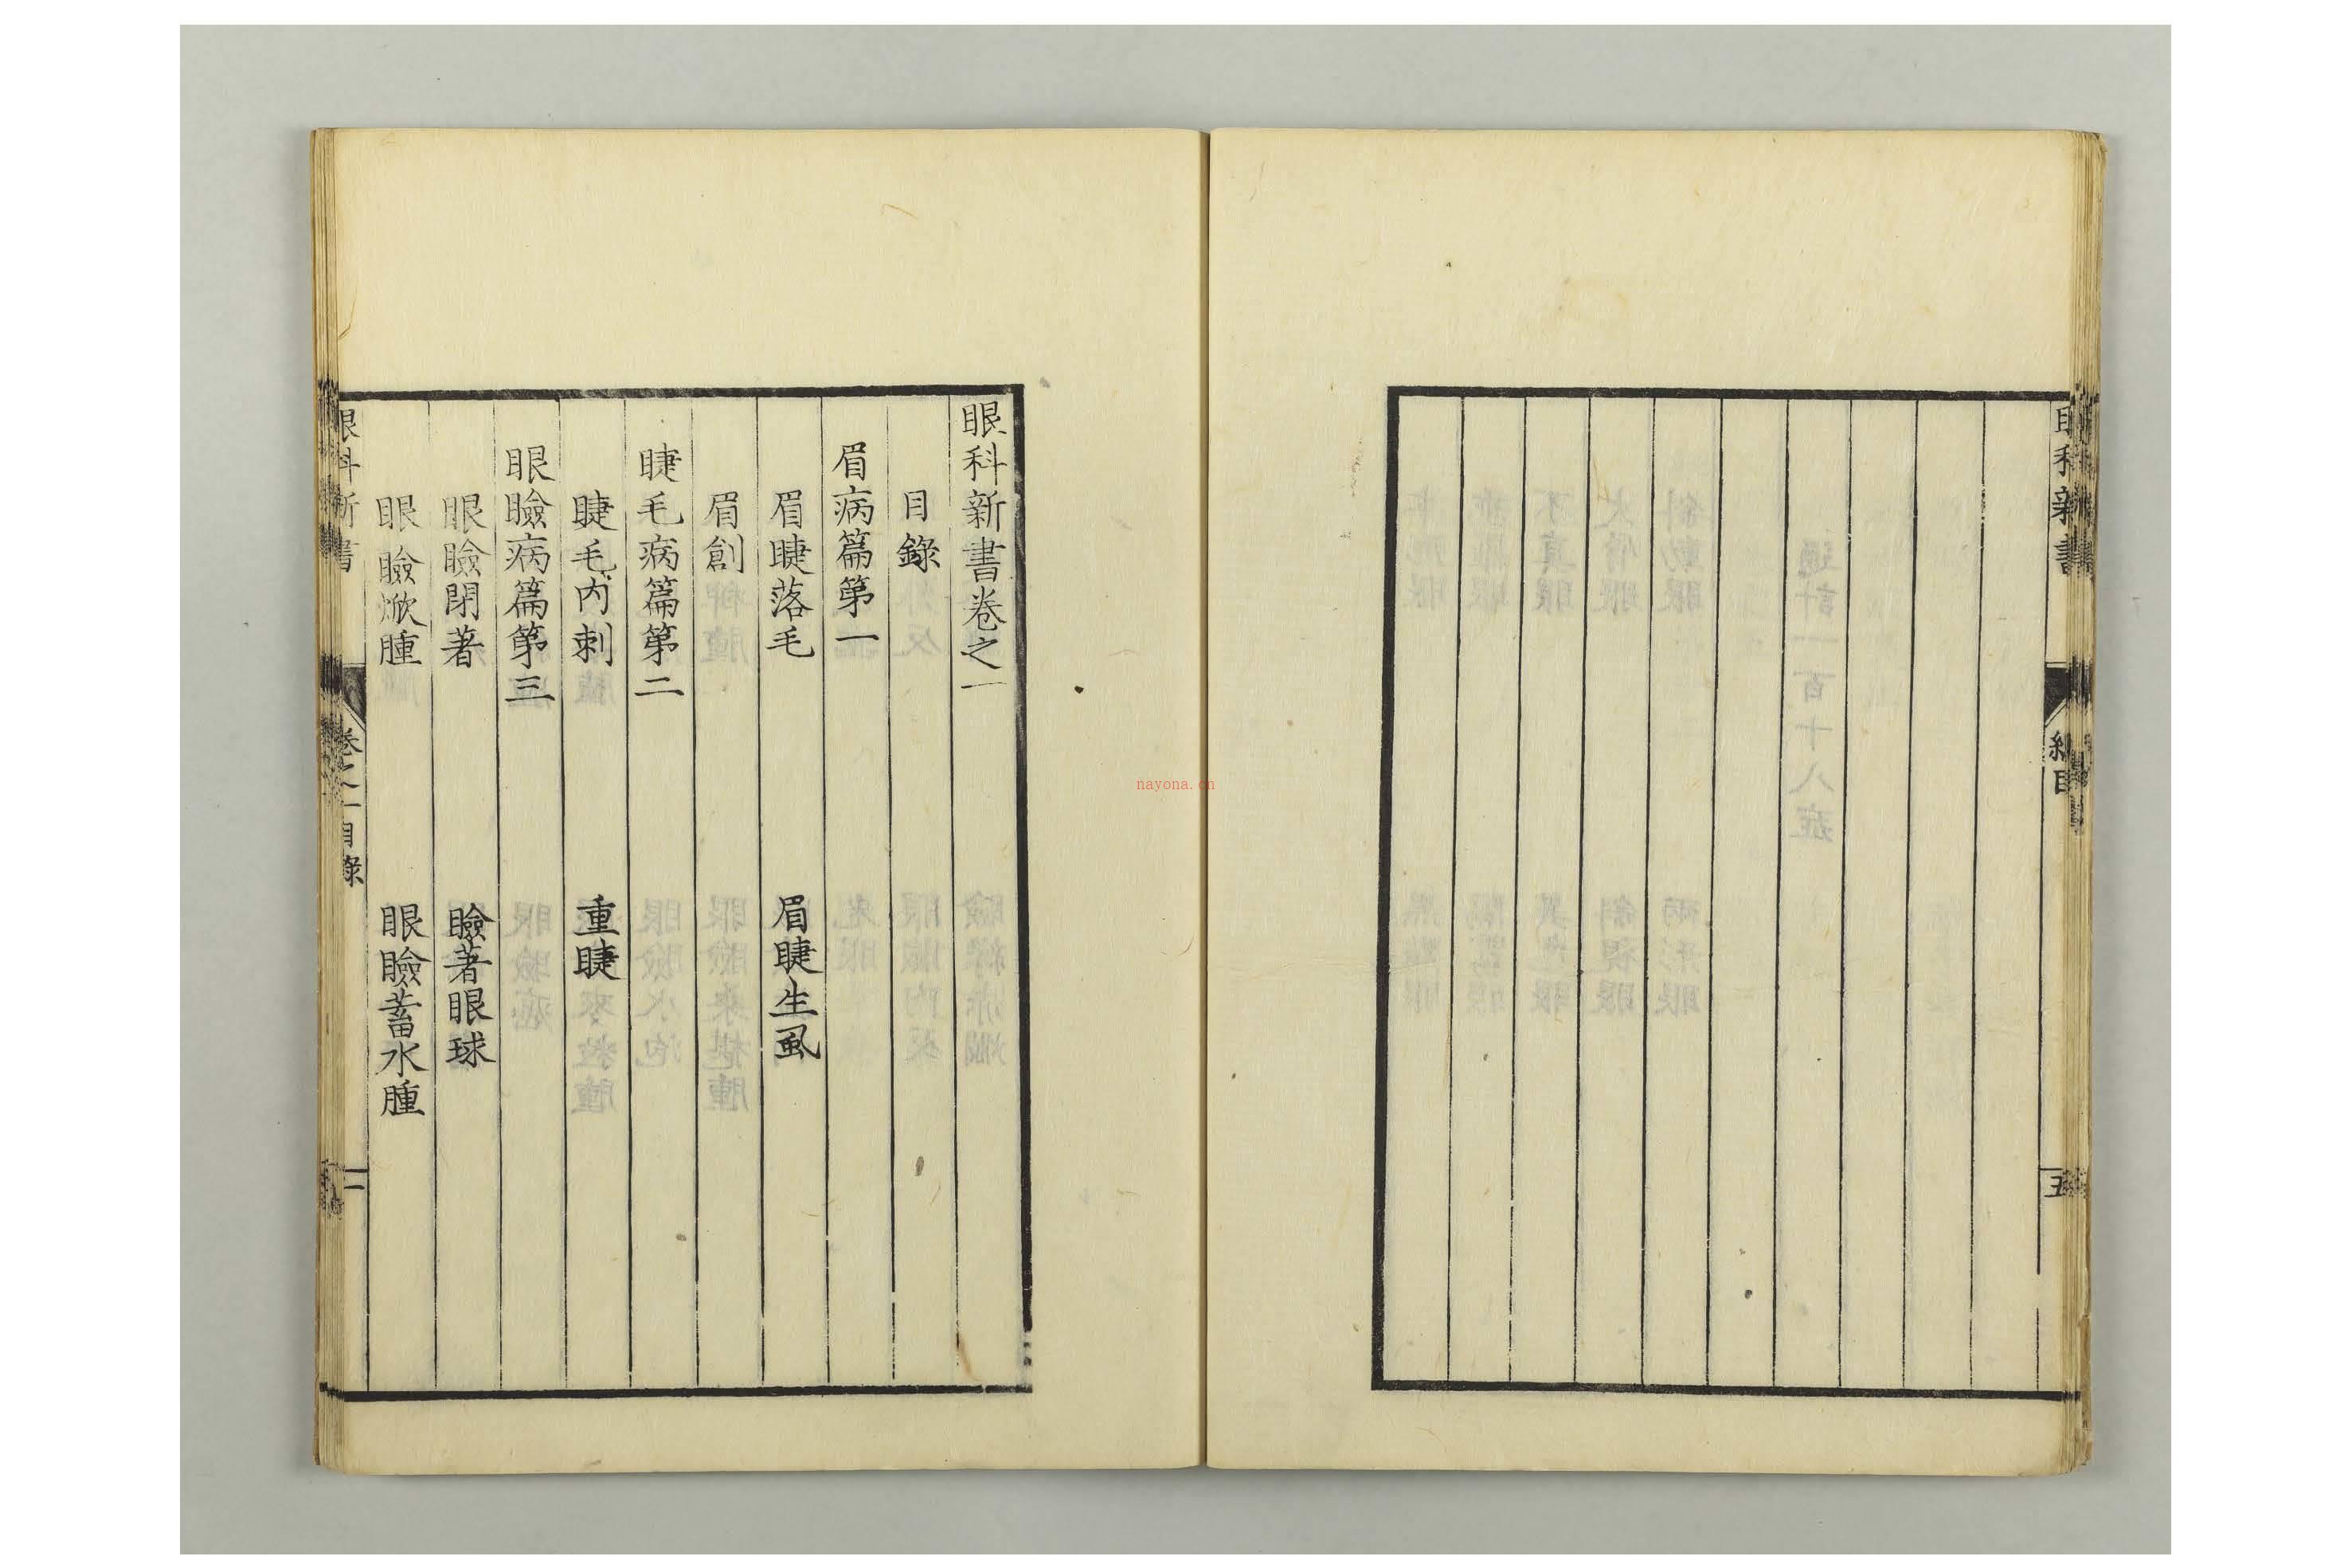 眼科新書
總目
五
眼科新書卷之一
目錄
眉病篇第一
眉睫落毛　眉睫生虱
眉創
睫毛病篇第二
睫毛內刺　重睫
眼瞼病篇第三
眼瞼閉著　瞼著眼球
眼瞼焮腫　眼瞼蓄水腫
眼科新書
卷之一目錄
一
nayona.cn